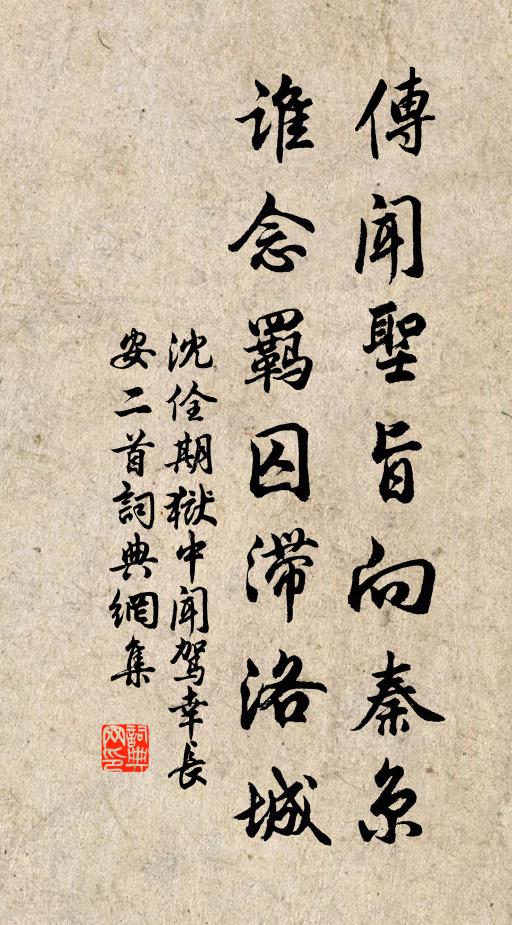 傳闻聖旨向秦京
谁念羈囚滞洛城
沈佺期獄中闻駕幸長
安二首詞典網集
詞典网印